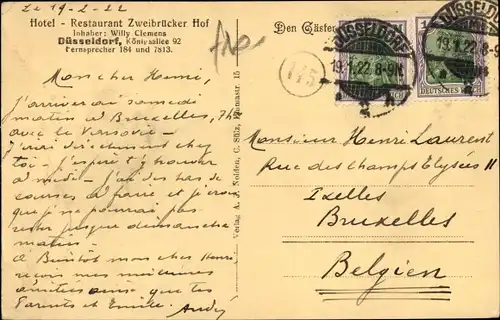 Le 19-1-22
Hotel - Restaurant Zweibrücker Hof
Inhaber: Willy Clemens
Düsseldorf, Königsallee 92
Fernsprecher 184 und 7813.
Den Gästen
DÜSSELDORF
19.1.22.8-9
DÜSSELDORF
19.1.22.8-9
DEUTSCHES
Mon cher Henri,
J'arriverai samedi
matin à Bruxelles, 7h
avec le Varsovie -
J'irai directement chez
toi - J'espère t'y trouver
à midi - J'ai des tas de
courses à faire et je crois
que je ne pourrai pas
rester jusque dimanche
matin -
à Bientôt mon cher Henri
reçois mes meilleures
amitiés ainsi que tes
Parents et Emile. André
Verlag A. J. Nolden, Cöln-Sülz, 15
Monsieur Henri Laurent
Rue des Champs Elysées 11
Ixelles
Bruxelles
Belgien